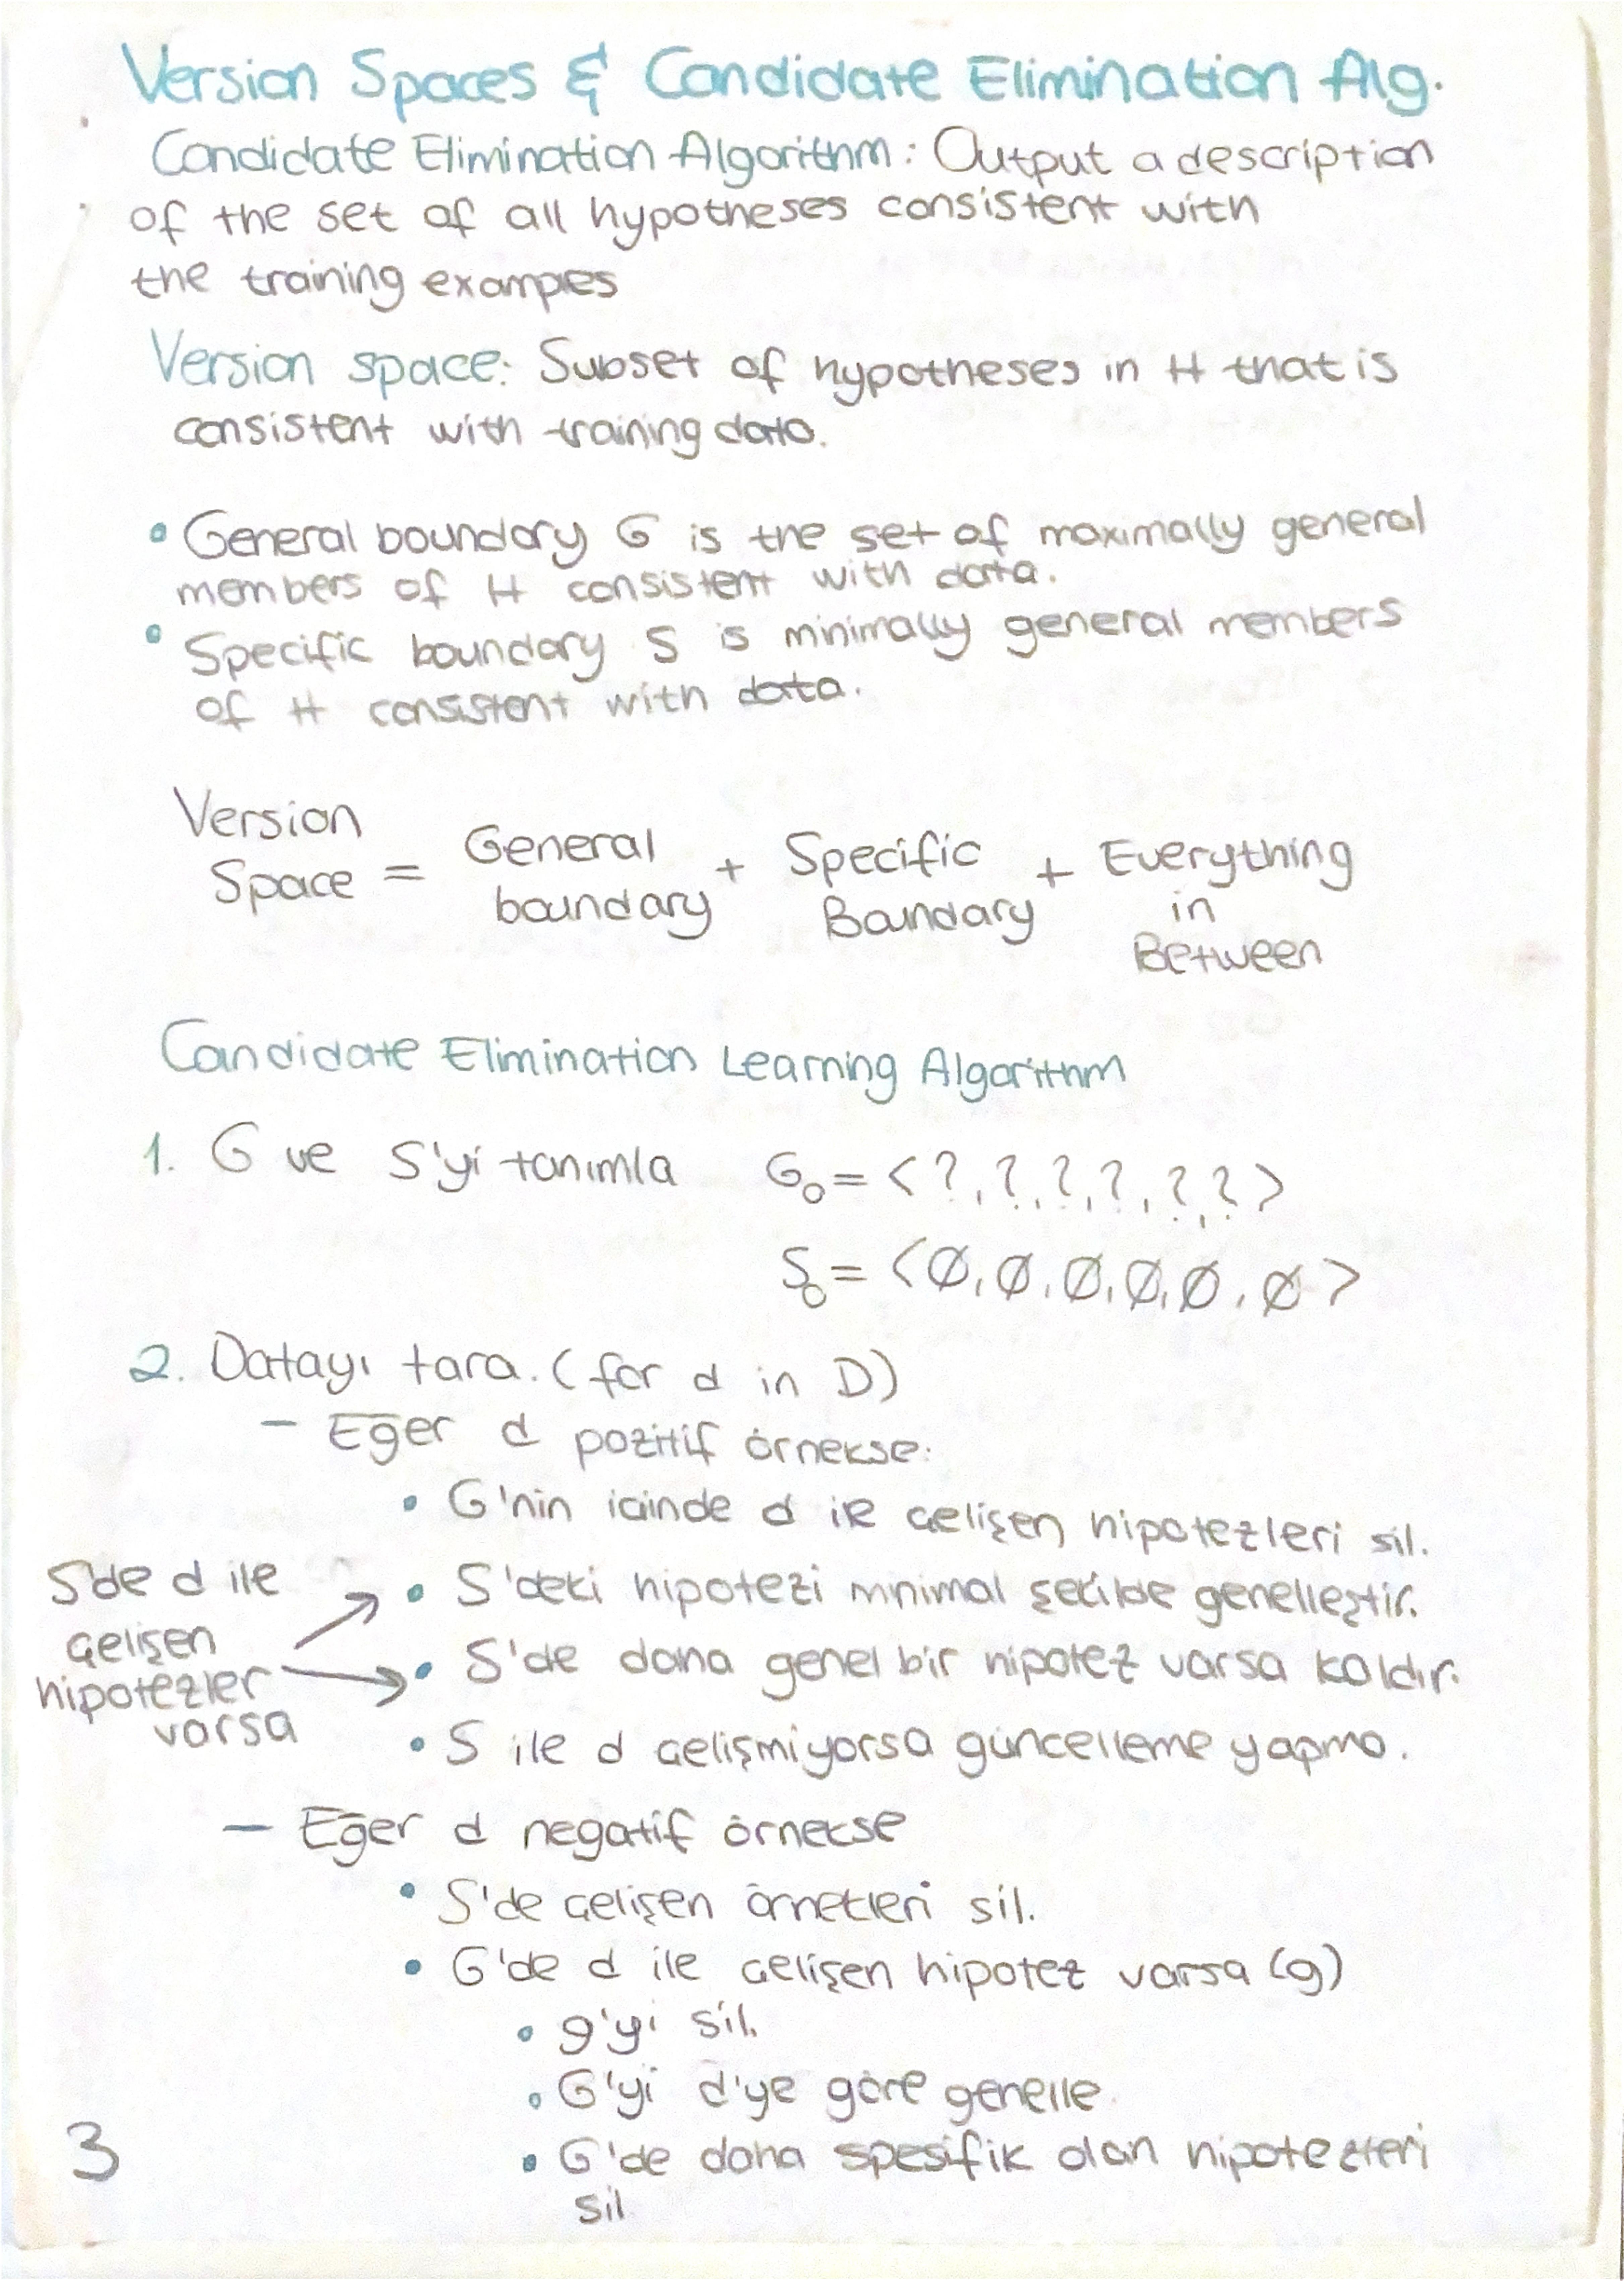 Version Spaces & Candidate Elimination Alg.
Candidate Elimination Algorithm: Output a description
of the set of all hypotheses consistent with
the training examples
Version space: Subset of hypotheses in H that is
consistent with training data.
• General boundary G is the set of maximally general
members of H consistent with data.
• Specific boundary S is minimally general members
of H consistent with data.
Version
Space = General boundary + Specific Boundary + Everything in Between
Candidate Elimination Learning Algorithm
1. G ve S'yi tanımla G₀ = <?,?,?,?,?,?>
S₀ = <∅,∅,∅,∅,∅,∅>
2. Datayı tara. (for d in D)
– Eğer d pozitif örnekse:
• G'nin içinde d ile çelişen hipotezleri sil.
S'de d ile
çelişen
hipotezler
varsa
• S'deki hipotezi mnimal şekilde genelleştir.
• S'de daha genel bir hipotez varsa kaldır.
• S ile d çelişmiyorsa güncelleme yapma.
– Eğer d negatif örnekse
• S'de çelişen örnekleri sil.
• G'de d ile çelişen hipotez varsa (g)
• g'yi sil.
• G'yi d'ye göre genelle.
• G'de daha spesifik olan hipotezleri
sil
3